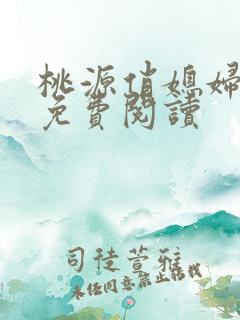 桃源俏媳婦
免費閱讀
司徒萱雅
未经同意禁止转载